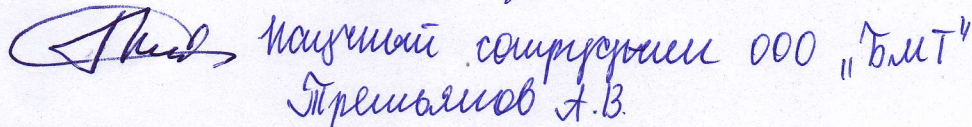 Научный сотрудник ООО „БМТ"
Третьяков А.В.